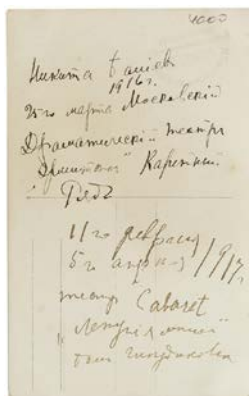 4000
Никита Балiев
1916 г.
25го марта Московскiй
Драматическiй театръ
Каретный
Рядъ
11го февраля
5го апреля 1917
театр Cabaret
„Летучая мышь"